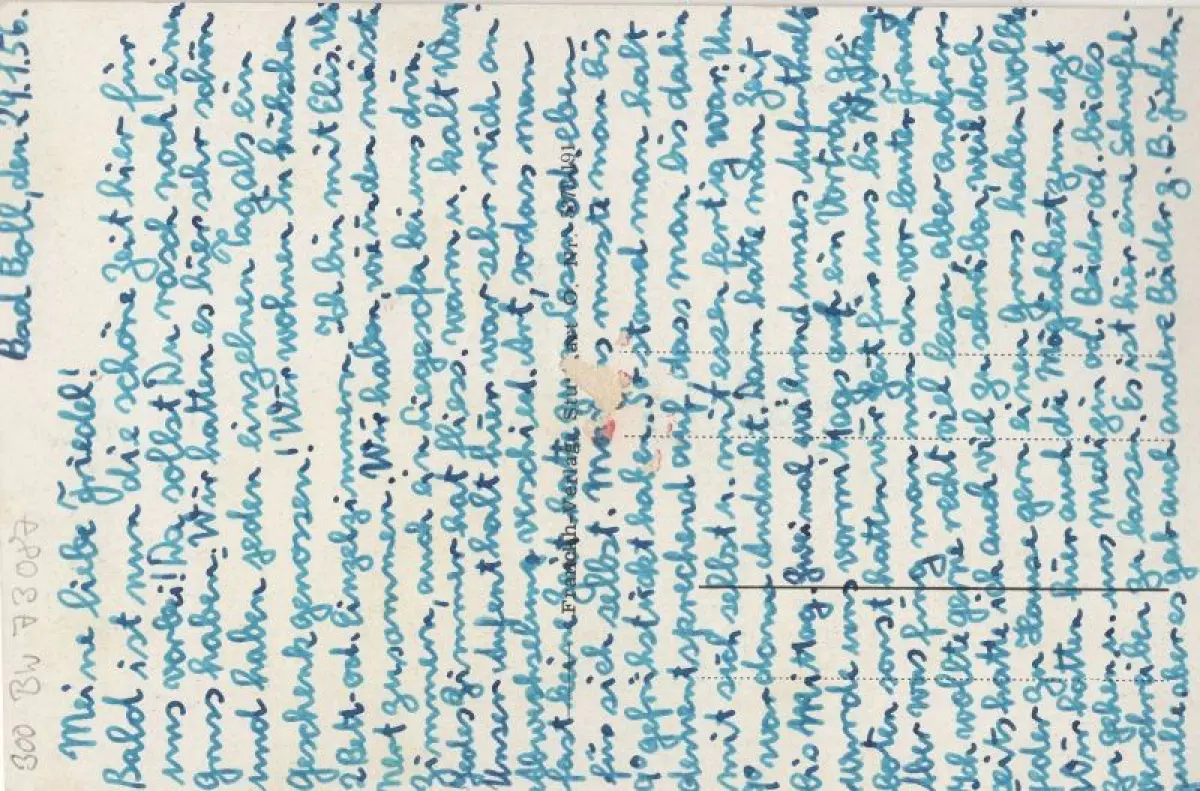 Bad Boll, den 24.1.56.
Meine liebe Friedel!
Bald ist nun die schöne Zeit hier für
uns vorbei! Da sollst Du rasch noch einen
Gruss haben. Wir hatten es hier sehr schön
und haben jeden einzelnen Tag als ein
Geschenk genossen. Wir wohnen in hübschen
2 Bett- od. Einzelzimmern. Ich bin mit Elis.
zusammen. Wir haben, wie in den meisten
Zimmern, auch ein Liegesofa bei uns drin.
Jedes Zimmer hat fliess. warm u. kalt Wasser.
Unser Aufenthalt hier war sehr reich an
Abwechslung verschied. Art, sodass man
fast keine Zeit hatte zum Schreiben
für sich selbst. Morgens musste man bis
9° gefrühstückt haben. So stand man halt
dementsprechend auf, dass man bis dahin
mit sich selbst u. mit essen fertig war. Um
9° war dann Andacht. Dann hatte man Zeit
bis Mittag. Zweimal während unsers Aufenthalts
wurde uns vormittags auch ein Vortrag ge-
boten, sonst hatten wir Zeit für uns bis Mittag.
Aber was fing man nun an vor lauter Freud.
Ich wollte gerne recht viel lesen, aber anderer-
seits hatte ich auch viel zu schreiben, weil doch
jeder zu Hause gern einen Gruss haben wollte.
Wir hatten hier auch die Möglichkeit, zum Arzt
zu gehen u. uns Medizin od. Bäder od. beides
verschreiben zu lassen. Es ist hier eine Schwefel-
quelle. Aber es geb. auch andere Bäder z. B. Fichten-
Franckh-Verlag, Stuttgart-O. Nr.
300 BW 73087